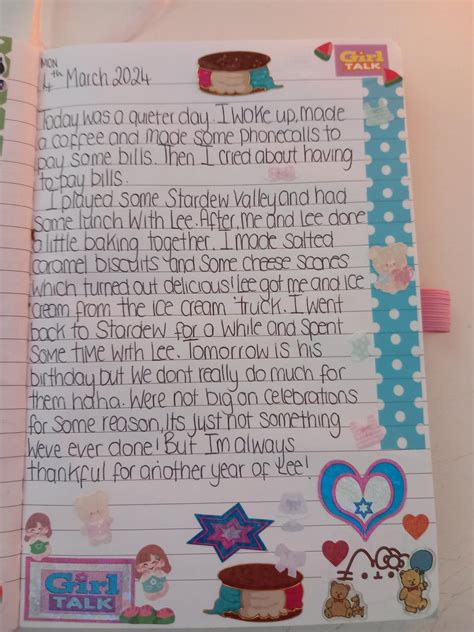 MON
4th March 2024
Girl
TALK
Today was a quieter day. I woke up, made
a coffee and made some phonecalls to
pay some bills. Then I cried about having
to pay bills.
I played some Stardew Valley and had
some lunch with Lee. After, me and Lee done
a little baking together. I made salted
caramel biscuits and some cheese scones
which turned out delicious! Lee got me and ice
cream from the ice cream truck. I went
back to Stardew for a while and spent
some time with Lee. Tomorrow is his
birthday but we dont really do much for
them haha. Were not big on celebrations
for some reason, Its just not something
weve ever done! But Im always
thankful for another year of Lee!
Girl
TALK